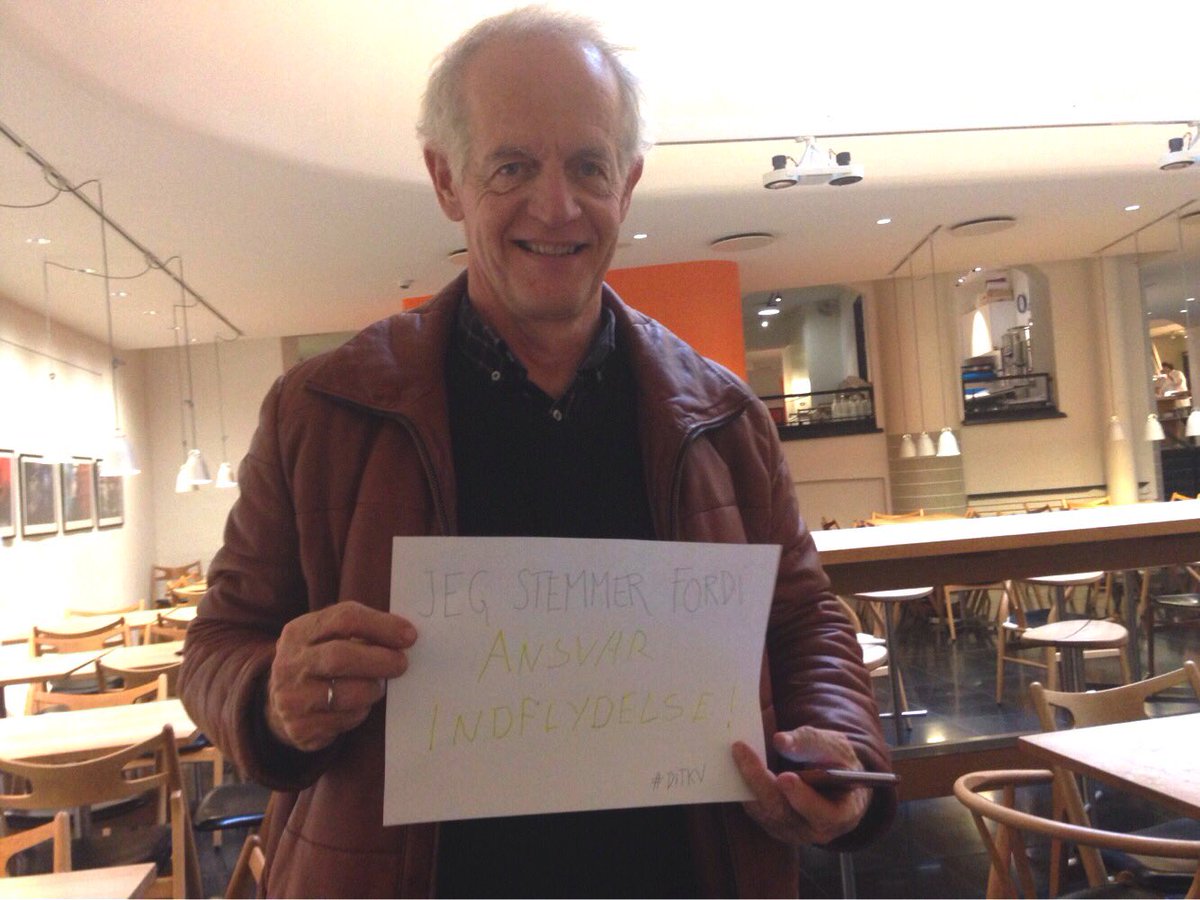 JEG STEMMER FORDI
ANSVAR
INDFLYDELSE!
#DITKV